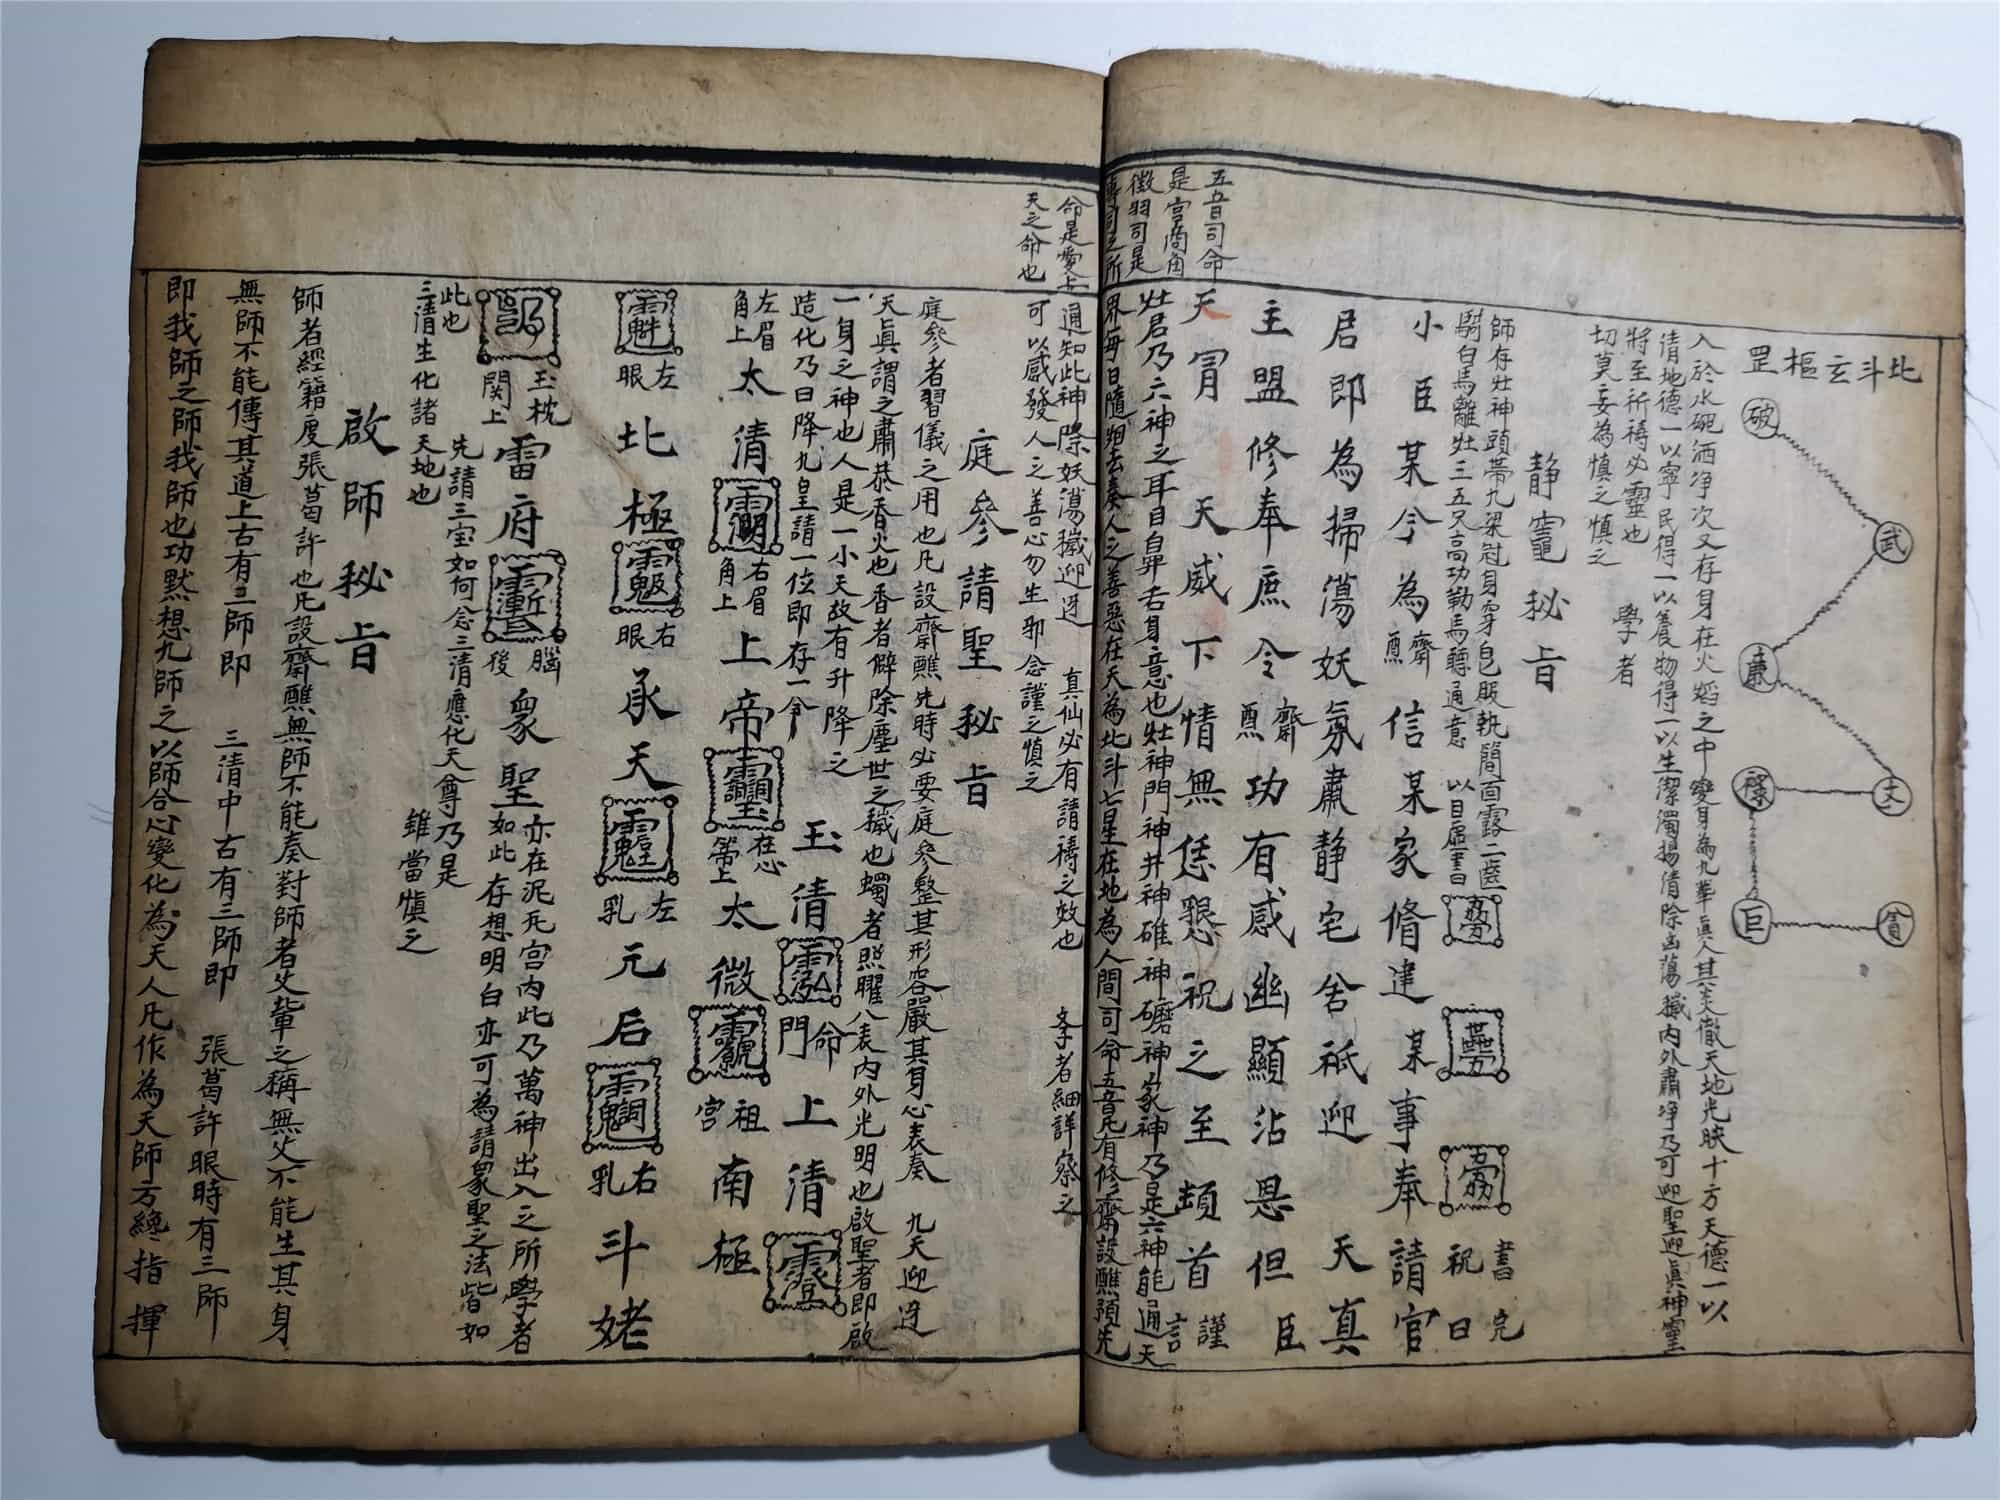 北斗玄樞罡
破
武
廉
文
祿
巨
貪
入於水碗洒净次又存身在火熖之中變身為九華真人其炎徹天地光映十方天德一以
清地德一以寧民得一以養物得一以生潔濁揚清除凶蕩穢内外肅净乃可迎聖迎真神靈
將至所禱必靈也　學者
切莫妄為慎之慎之
静竈秘旨
師存灶神頭帶九梁冠身穿皂服執簡面露二齒
騎白馬離灶三五尺高功勒馬聽通意　以目虛書
書完
祝曰
小臣某今為齋醮信某家脩建某事奉請官
君即為掃蕩妖氛肅静宅舍祇迎　天真
主盟修奉庶令齋醮功有感幽顯沾恩但臣
天冐　天威下情無恁懇祝之至頓首謹言
五音司命
是宮商角
徵羽司是
專司之所
灶君乃六神之耳目鼻舌身意也灶神門神井神碓神磨神家神乃是六神能通天
界每日隨朔去奏人之善惡在天為北斗七星在地為人間司命五音凡有修齋設醮預先
命是愛上
天之命也
通知此神除妖蕩穢迎迓　真仙必有請禱之效也　孝者細詳察之
可以感發人之善心勿生邪念謹之慎之
庭參請聖秘旨
庭參者習儀之用也凡設齋醮先時必要庭參整其形容嚴其身心表奏　九天迎迓
天真謂之肅恭香火也香者僻除塵世之穢也蠋者照曜八表内外光明也啟聖者即啟
一身之神也人是一小天故有升降之
造化乃曰降九皇請一位即存一个
玉清
命門
上清
左眉角上
太清
右眉角上
上帝
在心
太微
祖宮
南極
左眼
北極
右眼
承天
左乳
元后
右乳
斗姥
玉枕関上
雷府
腦後
衆聖
亦在泥丸宮内此乃萬神出入之所學者
如此存想明白亦可為請衆聖之法皆如
此也　先請三宝如何念三清應化天尊乃是
三清生化諸天地也　雖當慎之
啟師秘旨
師者經籍度張葛許也凡設齋醮無師不能奏對師者父輩之稱無父不能生其身
無師不能傳其道上古有三師即　三清中古有三師即　張葛許眼時有三師
即我師之師我師也功默想九師之以師合心變化為天人凡作為天師方纔指揮